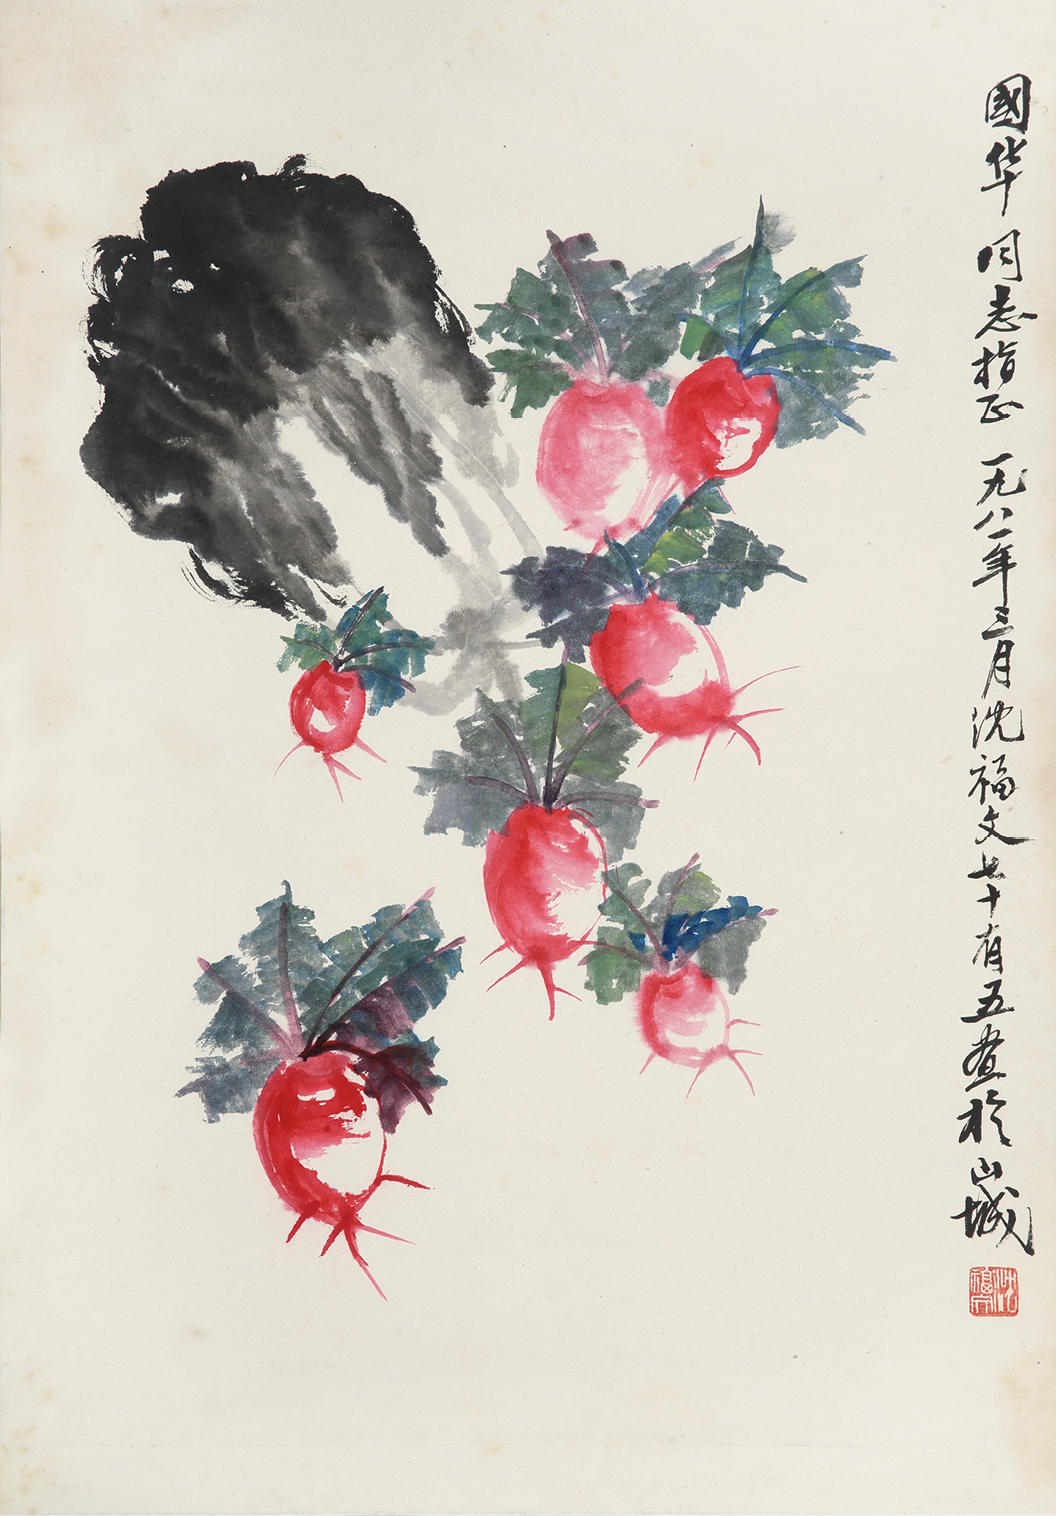 國华同志指正 一九八一年三月沈福文七十有五画於山城
沈福文